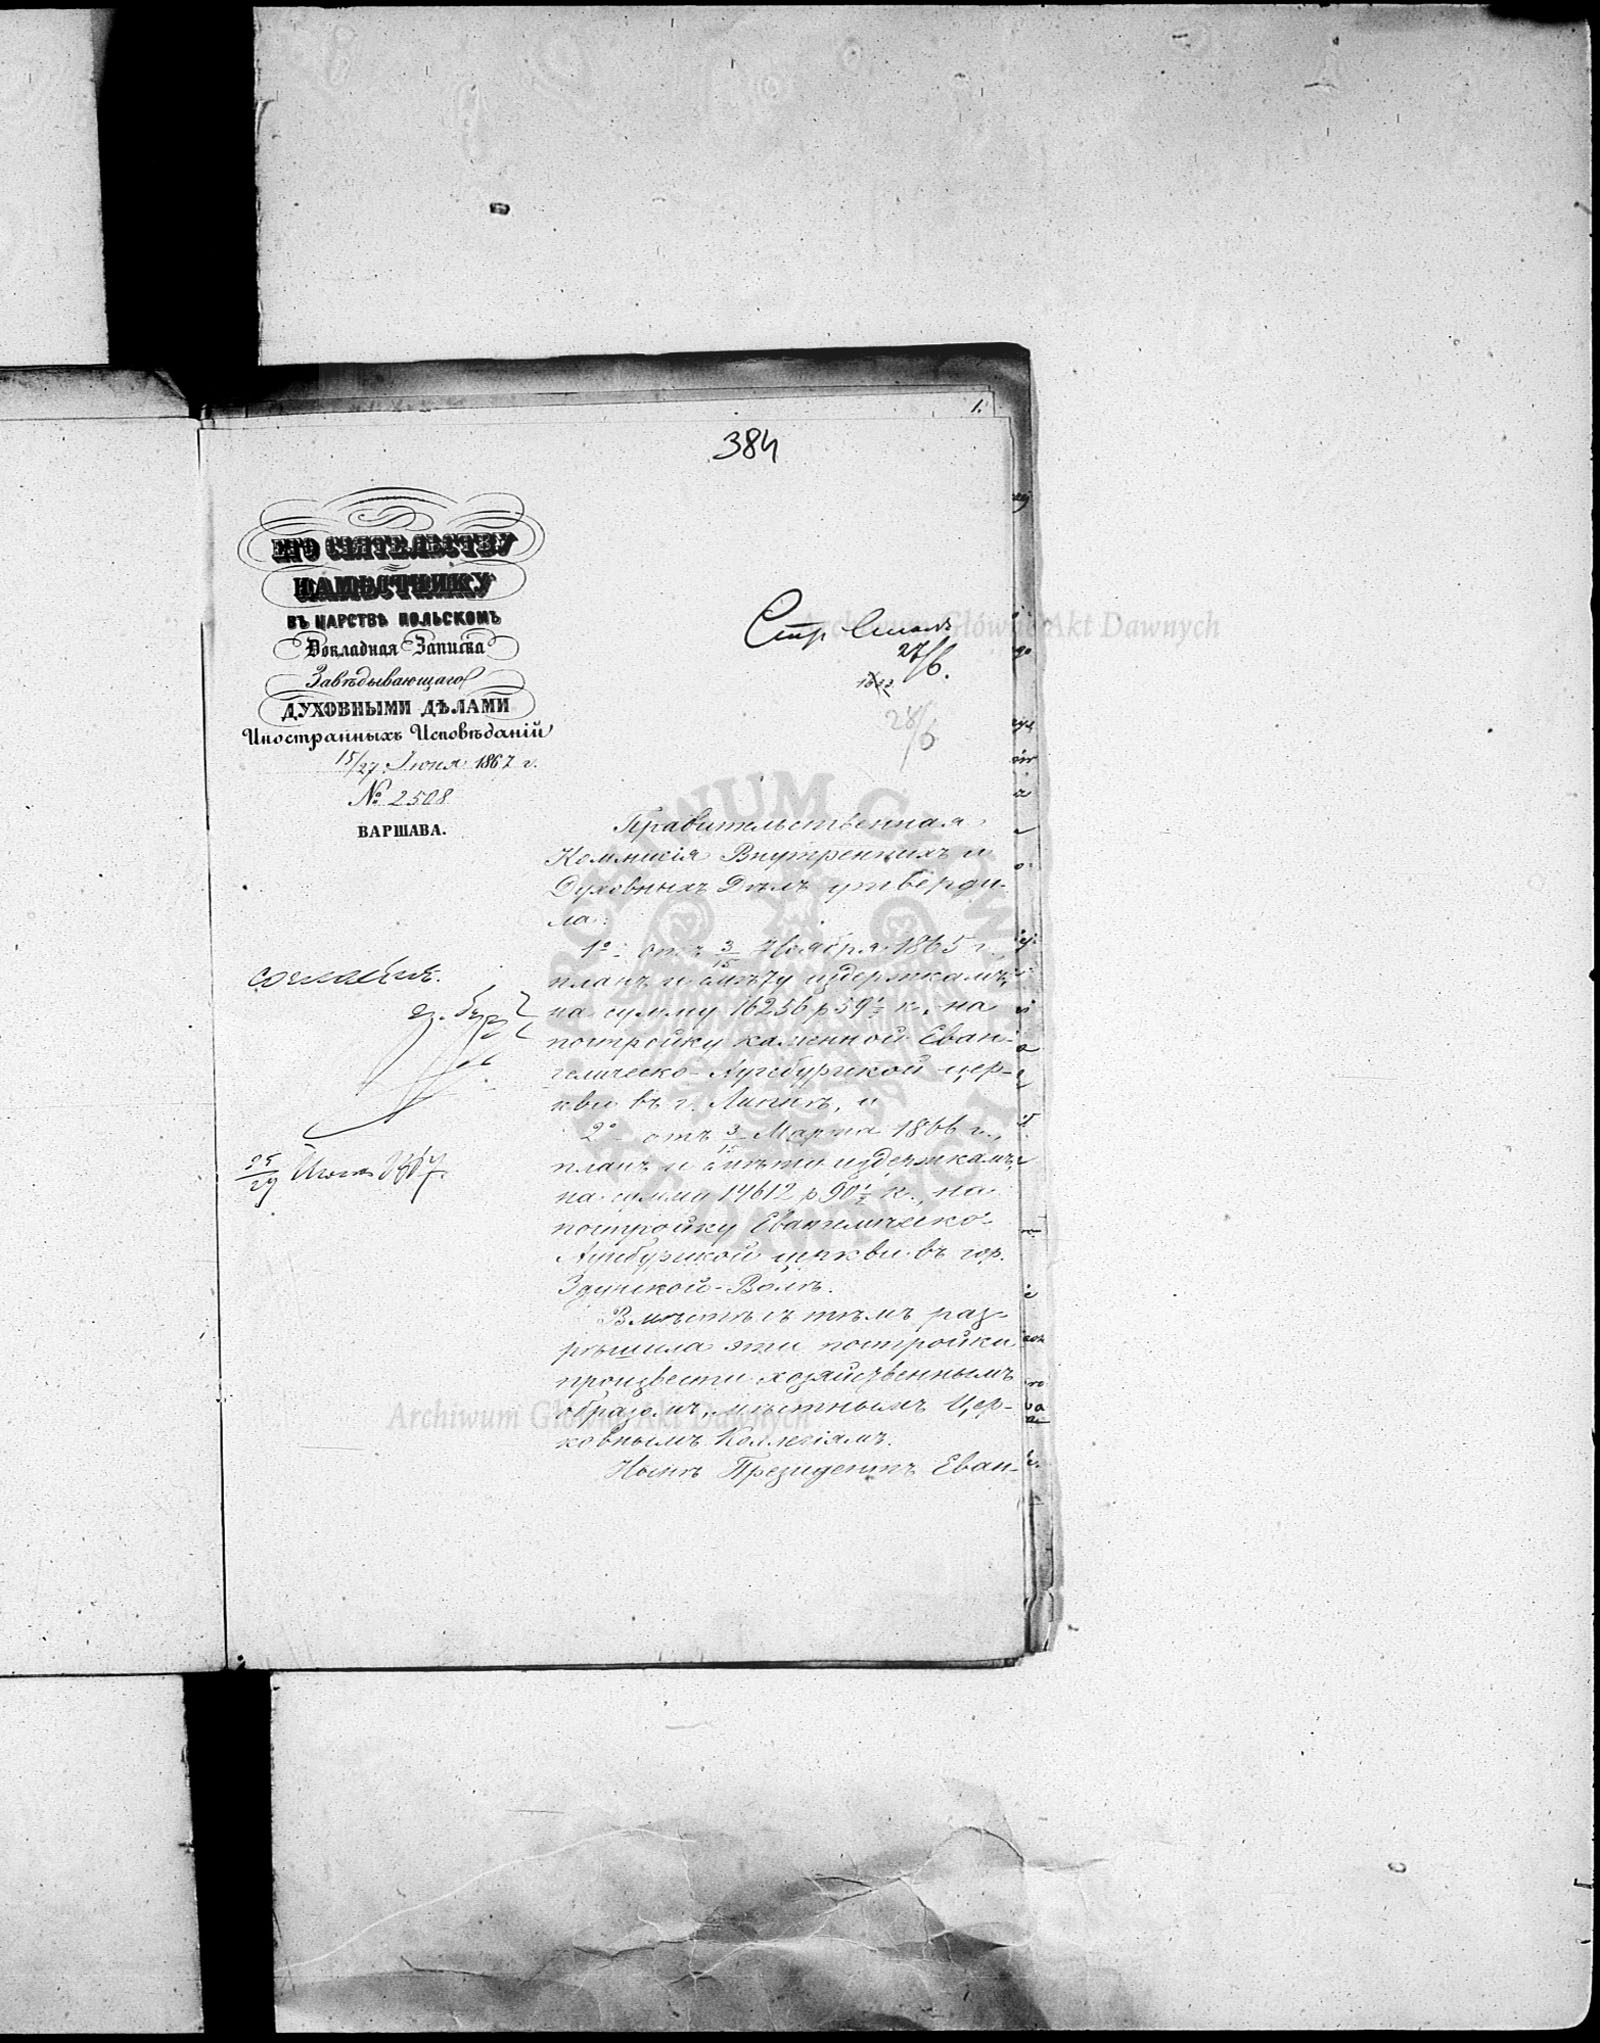 1.
384
ЕГО СІЯТЕЛЬСТВУ
НАМѢСТНИКУ
ВЪ ЦАРСТВѢ ПОЛЬСКОМЪ
Докладная Записка
Завѣдывающаго
ДУХОВНЫМИ ДѢЛАМИ
Иностранныхъ Исповѣданій
15/27 Іюня 1867 г.
№ 2508
ВАРШАВА.
27/6.
28/6
Правительственная
Коммисія Внутреннихъ и
Духовныхъ Дѣлъ утверди-
ла:
1º - отъ 3/15 Ноября 1865 г.,
планъ и смѣту издержкамъ,
на сумму 16256 р 59½ к. на
постройку каменной Еван-
гелическо-Аугсбургской цер-
кви въ г. Липнѣ, и
2º - отъ 3/15 Марта 1866 г.,
планъ и смѣту издержкамъ,
на сумму 14612 р 90½ к., на
постройку Евангелическо-
Аугсбургской церкви въ гор.
Здунской-Волѣ.
Вмѣстѣ съ тѣмъ раз-
рѣшила эти постройки
произвести хозяйственнымъ
образомъ, мѣстнымъ Цер-
ковнымъ Коллегіямъ.
Нынѣ Президентъ Еван-
согласенъ.
Archiwum Główne Akt Dawnych
Archiwum Główne Akt Dawnych